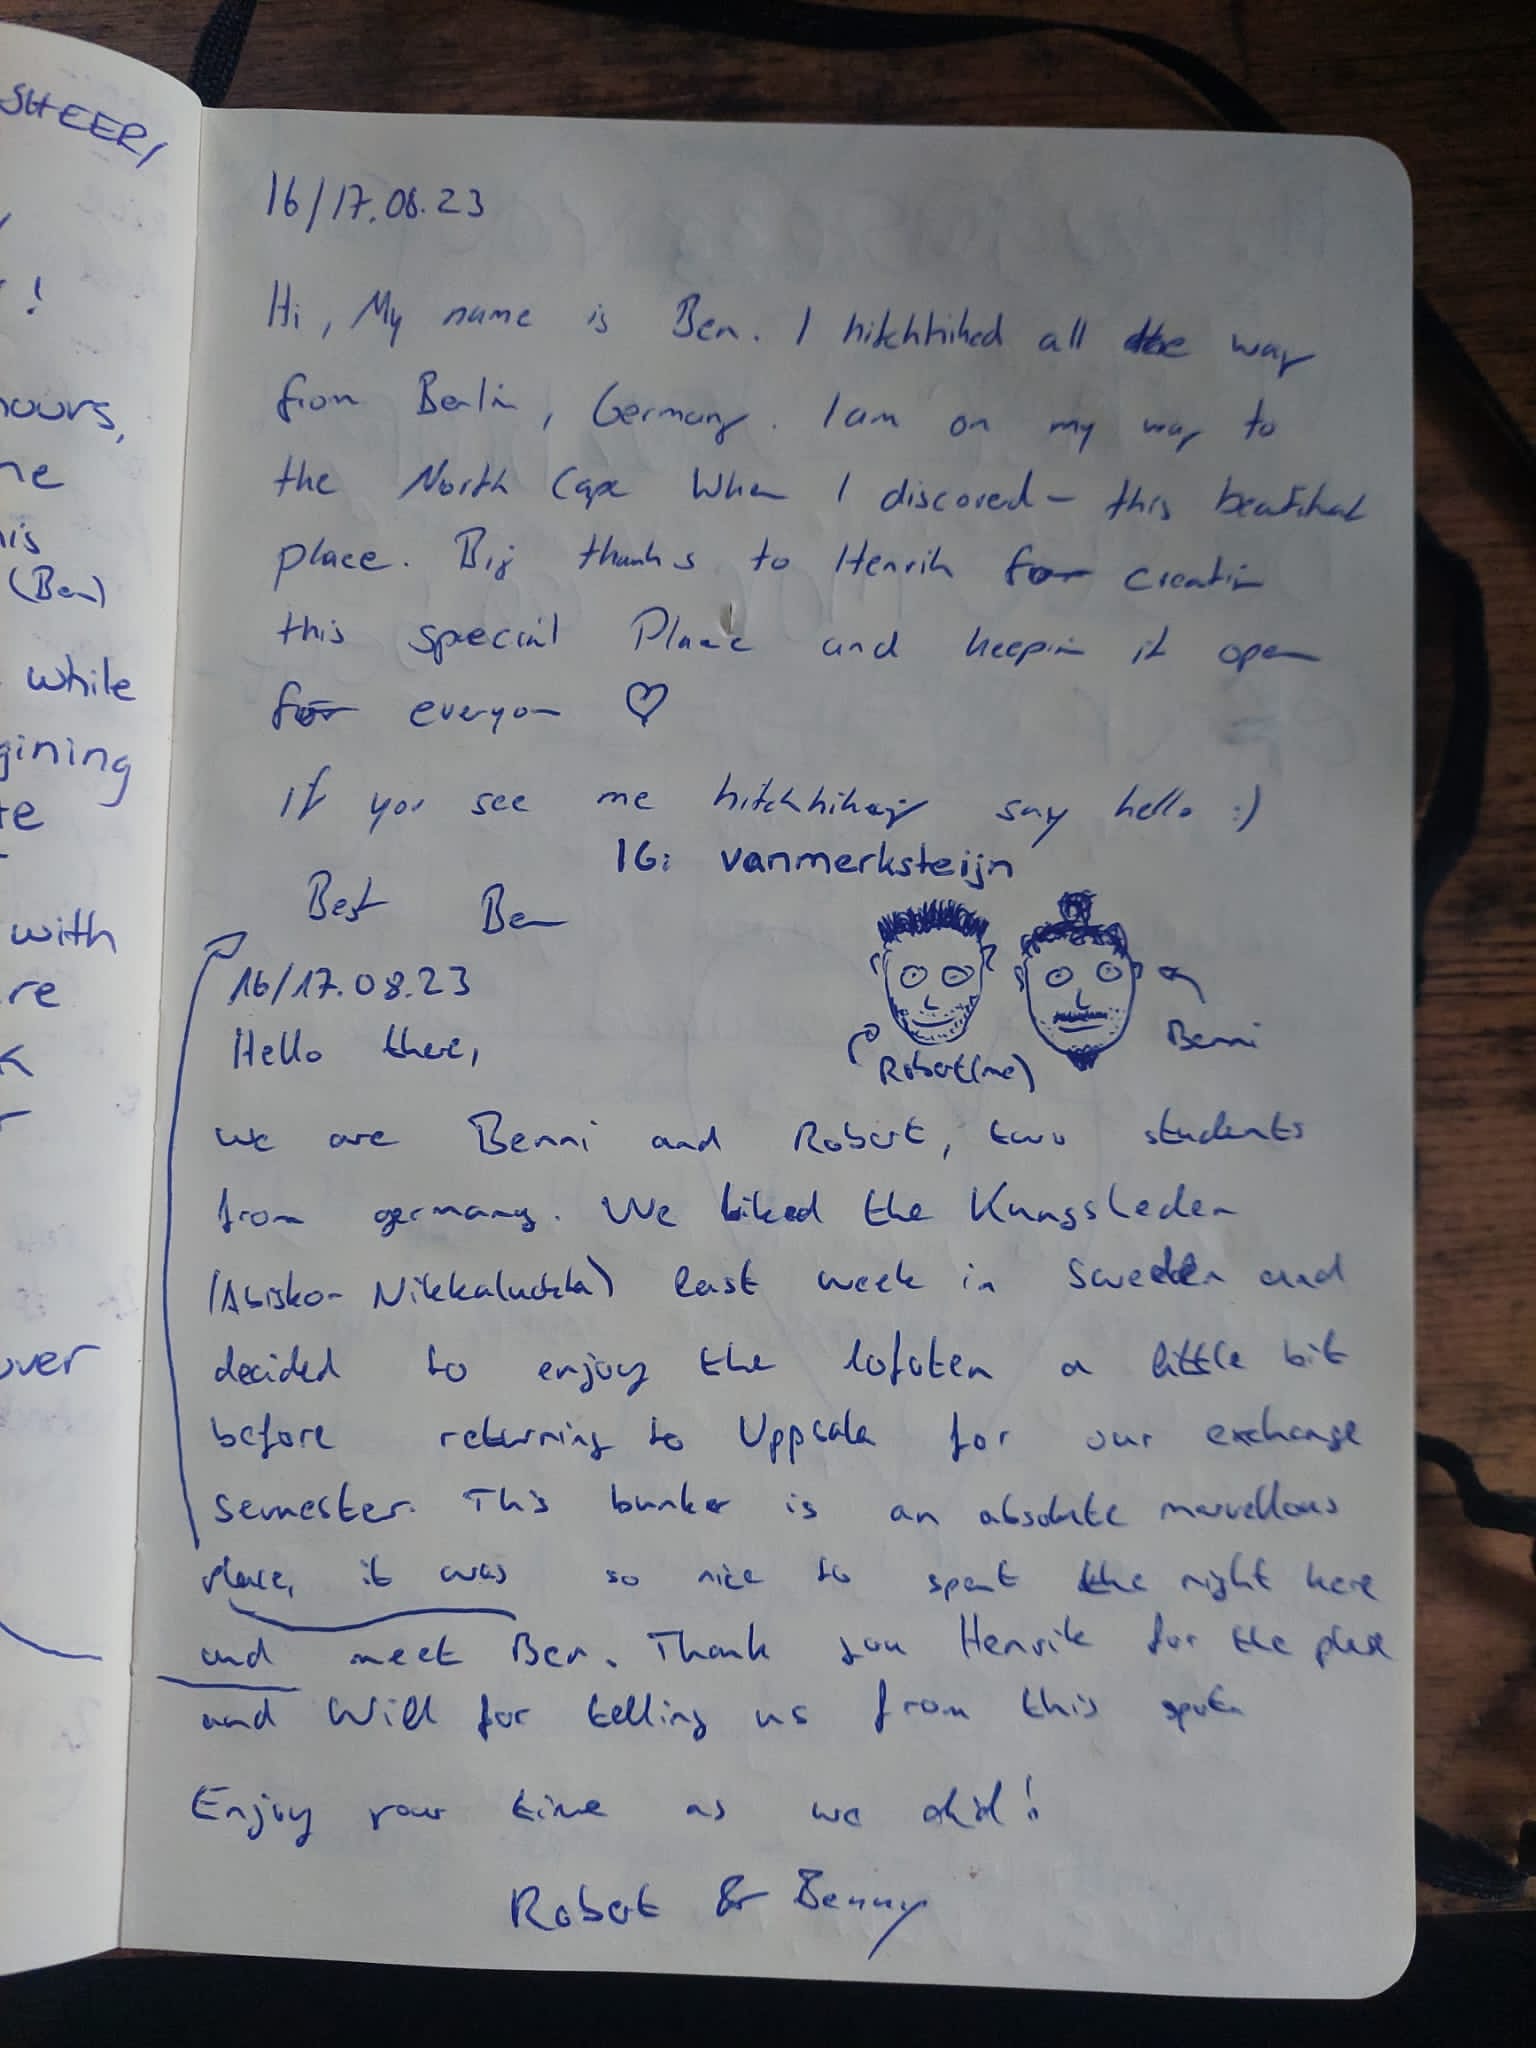 SHEER,
!
hours,
ne
his
(Ben)
while
gining
te
with
re
over
16/17.08.23
Hi, My name is Ben. I hitchhiked all the way
from Berlin, Germany. I am on my way to
the North Cape When I discovered this beatifual
place. Big thanks to Henrik for creatin
this special Place and keepin it open
for everyon ♡
If you see me hitchhiking say hello :)
IG: vanmerksteijn
Best Ben
16/17.08.23
Hello there,
Robert(me)
Benni
we are Benni and Robert, two students
from germany. We hiked the Kungsleden
(Abisko-Nikkaluokta) last week in Sweden and
decided to enjoy the lofoten a little bit
before returning to Uppsala for our exchange
semester. This bunker is an absolute marvellous
place, it was so nice to spent the night here
and meet Ben. Thank you Henrik for the place
and Will for telling us from this spot.
Enjoy your time as we did!
Robert & Benny